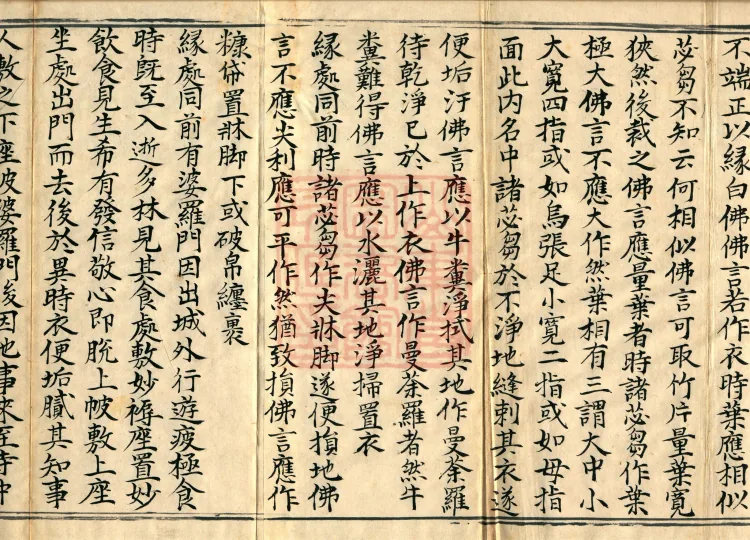 不端正以縁白佛佛言若作衣時葉應相似
苾芻不知云何相似佛言可取竹片量葉寬
狹然後裁之佛言應量葉者時諸苾芻作葉
極大佛言不應大作然葉相有三謂大中小
大寬四指或如烏張足小寬二指或如母指
面此内名中諸苾芻於不淨地縫刺其衣遂
便垢汙佛言應以牛糞淨拭其地作曼荼羅
待乾淨已於上作衣佛言作曼荼羅者然牛
糞難得佛言應以水灑其地淨掃置衣
縁處同前時諸苾芻作尖牀脚遂便損地佛
言不應尖利應可平作然猶致損佛言應作
糠帒置牀脚下或破帛纏裹
縁處同前有婆羅門因出城外行遊疲極食
時旣至入逝多林見其食處敷妙褥座置妙
飲食見生希有發信敬心即脫上帔敷上座
坐處出門而去後於異時衣便垢膩其知事
人敷之下座彼婆羅門後因他事來至寺中